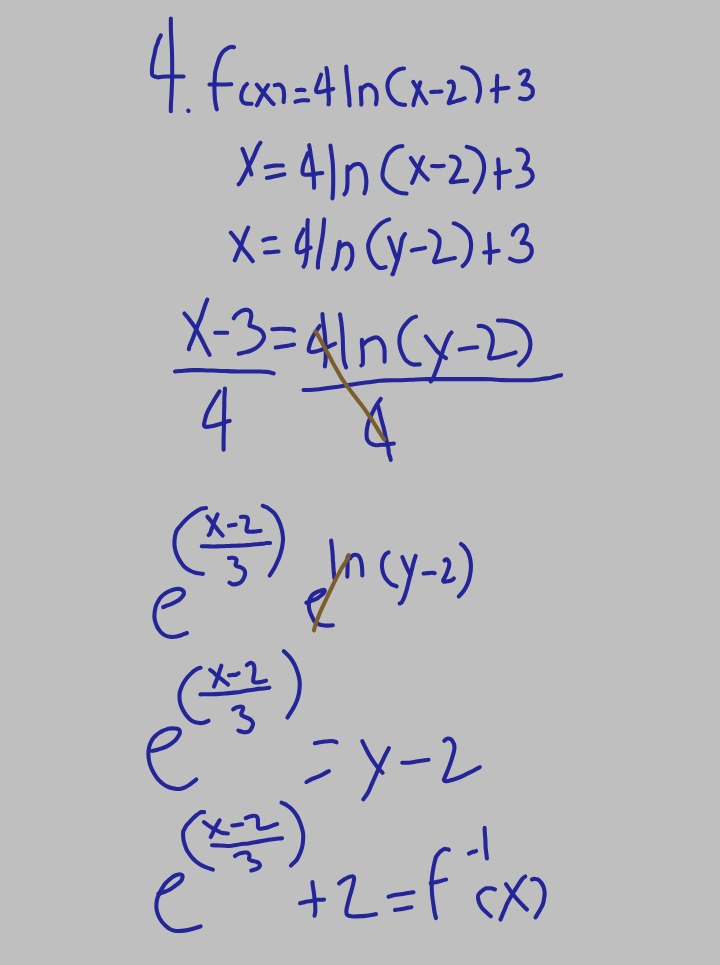 4. f(x)=4ln(x-2)+3
x=4ln(x-2)+3
x=4ln(y-2)+3
(x-3)/4=4ln(y-2)/4
e^((x-2)/3) e^ln(y-2)
e^((x-2)/3)=y-2
e^((x-2)/3)+2=f^-1(x)